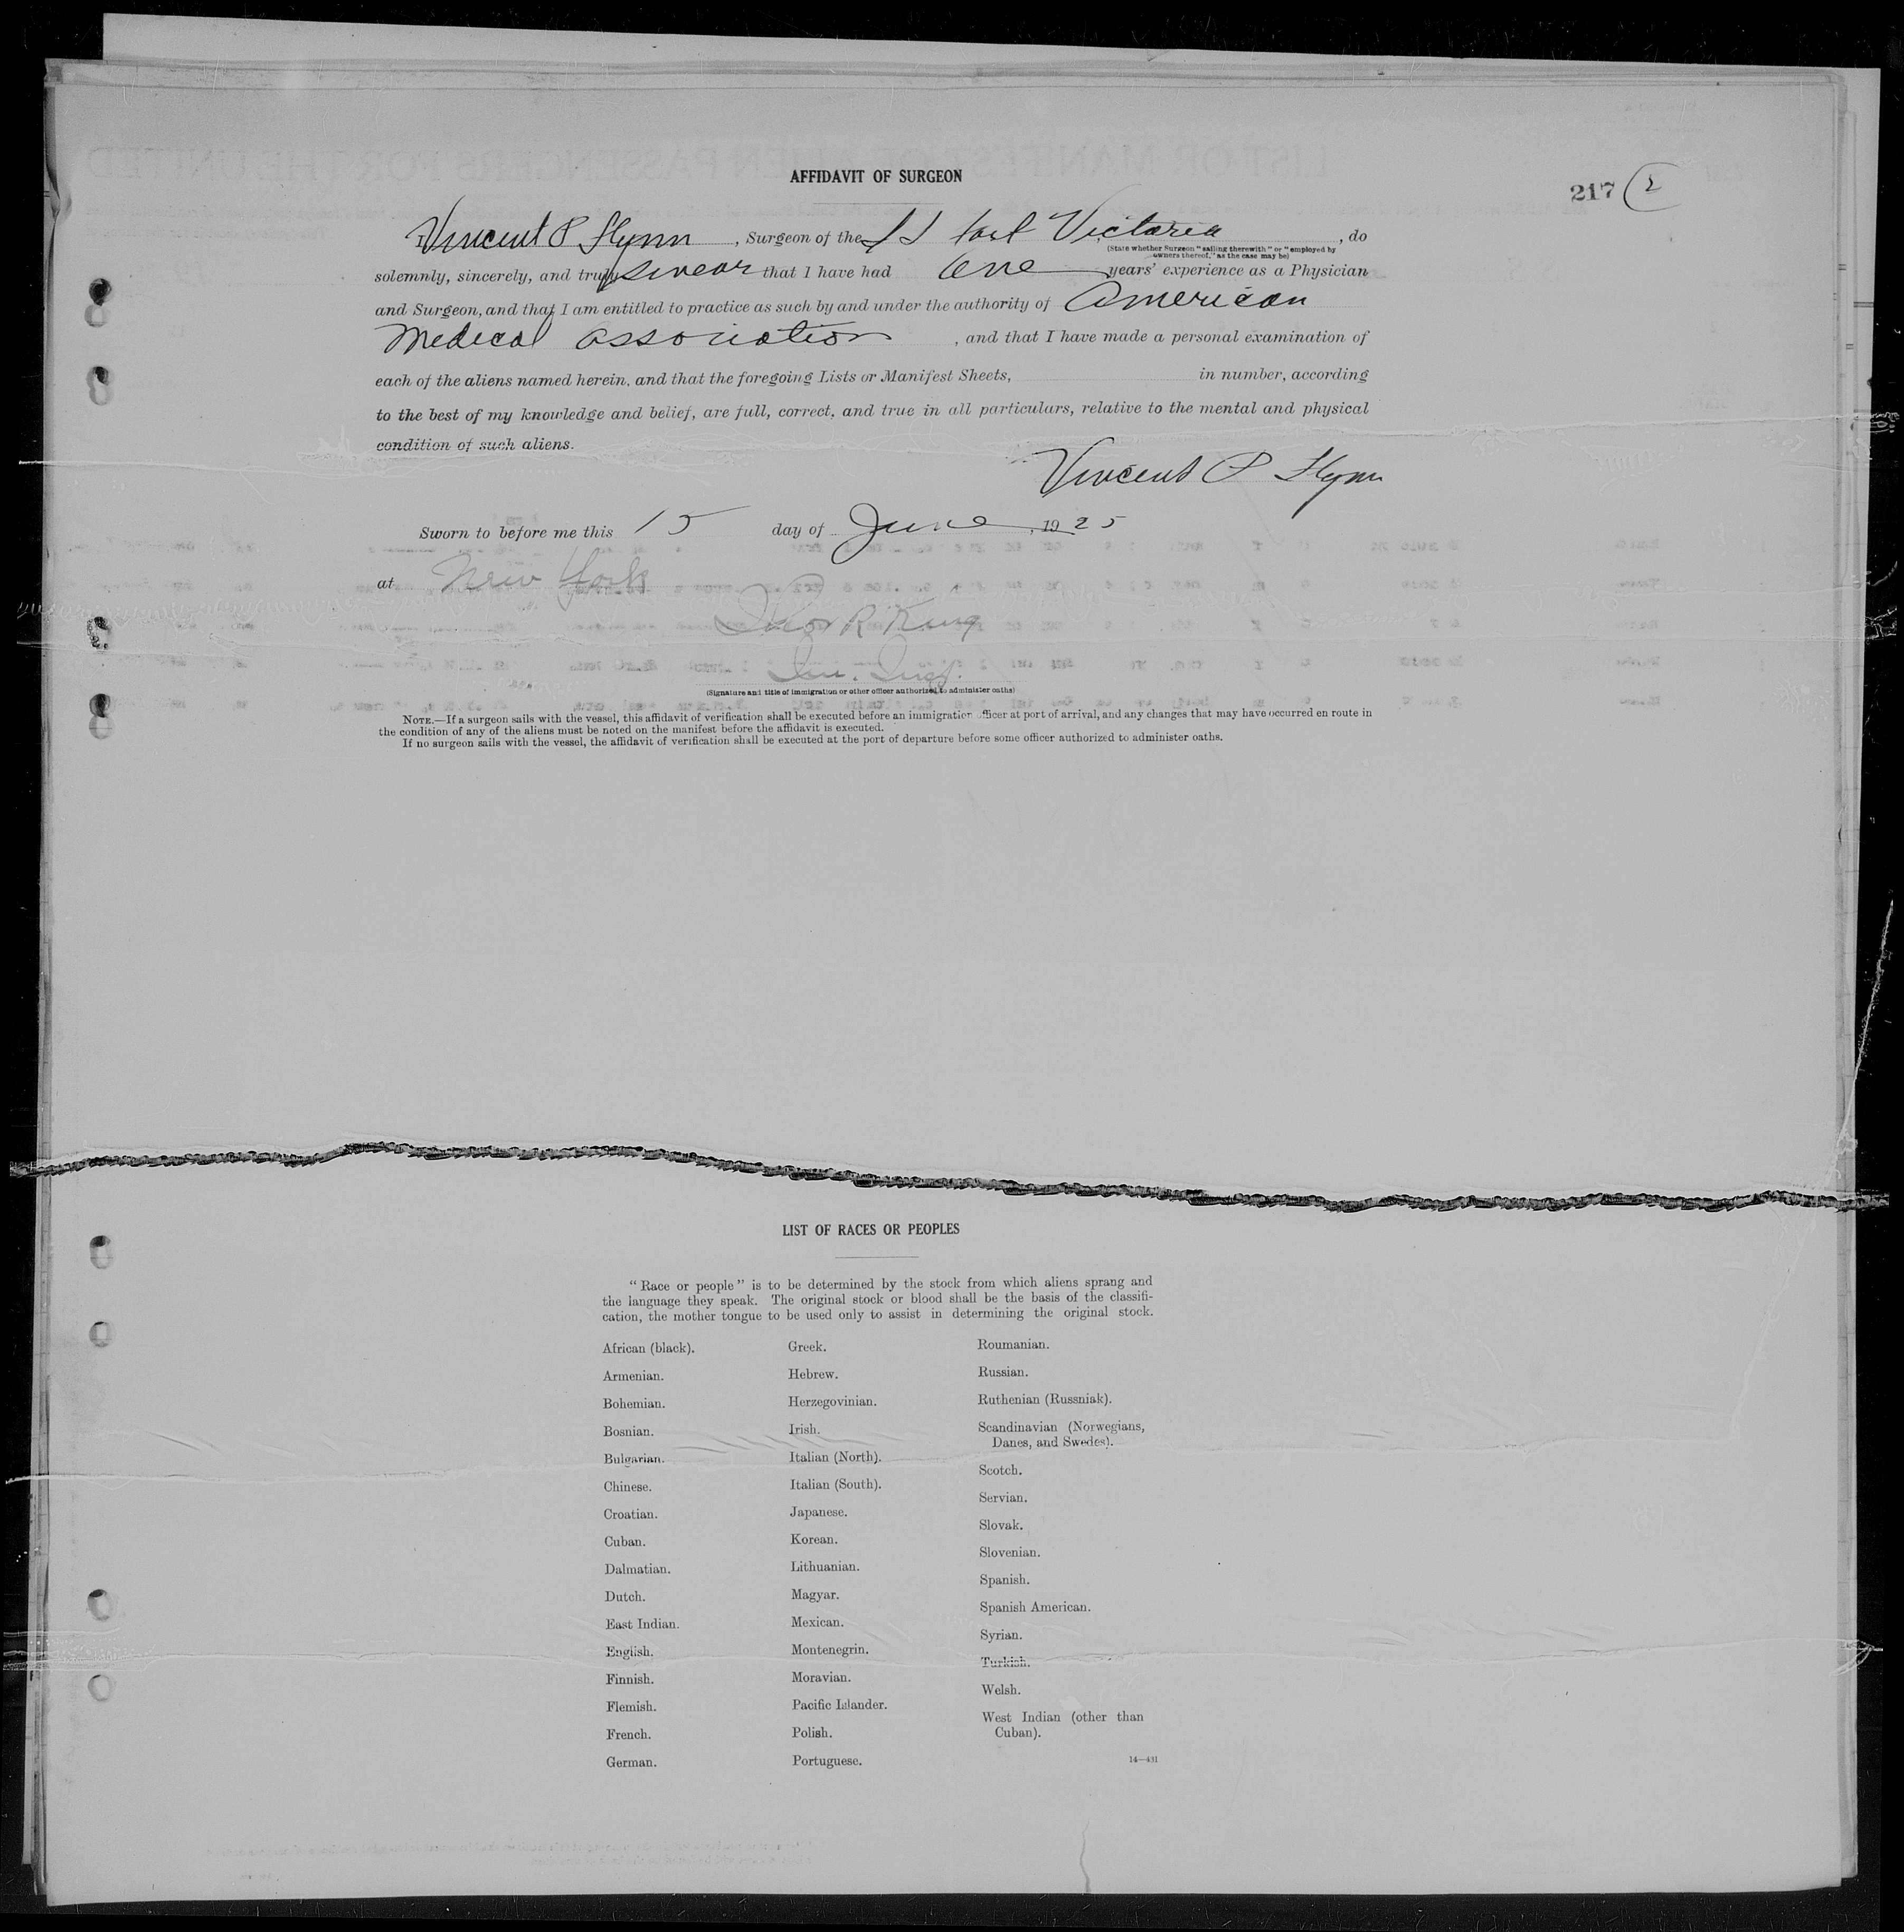 AFFIDAVIT OF SURGEON
217 2
I, Vincent P Flynn, Surgeon of the S S Fort Victoria, do
(State whether Surgeon "sailing therewith" or "employed by
owners thereof," as the case may be)
solemnly, sincerely, and truly swear that I have had One years' experience as a Physician
and Surgeon, and that I am entitled to practice as such by and under the authority of American
Medical Association, and that I have made a personal examination of
each of the aliens named herein, and that the foregoing Lists or Manifest Sheets, in number, according
to the best of my knowledge and belief, are full, correct, and true in all particulars, relative to the mental and physical
condition of such aliens.
Vincent P Flynn
Sworn to before me this 15 day of June, 1925
at New York
R King
(Signature and title of immigration or other officer authorized to administer oaths)
NOTE.—If a surgeon sails with the vessel, this affidavit of verification shall be executed before an immigration officer at port of arrival, and any changes that may have occurred en route in
the condition of any of the aliens must be noted on the manifest before the affidavit is executed.
If no surgeon sails with the vessel, the affidavit of verification shall be executed at the port of departure before some officer authorized to administer oaths.
LIST OF RACES OR PEOPLES
"Race or people" is to be determined by the stock from which aliens sprang and
the language they speak. The original stock or blood shall be the basis of the classifi-
cation, the mother tongue to be used only to assist in determining the original stock.
African (black).
Armenian.
Bohemian.
Bosnian.
Bulgarian.
Chinese.
Croatian.
Cuban.
Dalmatian.
Dutch.
East Indian.
English.
Finnish.
Flemish.
French.
German.
Greek.
Hebrew.
Herzegovinian.
Irish.
Italian (North).
Italian (South).
Japanese.
Korean.
Lithuanian.
Magyar.
Mexican.
Montenegrin.
Moravian.
Pacific Islander.
Polish.
Portuguese.
Roumanian.
Russian.
Ruthenian (Russniak).
Scandinavian (Norwegians,
Danes, and Swedes).
Scotch.
Servian.
Slovak.
Slovenian.
Spanish.
Spanish American.
Syrian.
Turkish.
Welsh.
West Indian (other than
Cuban).
14—431